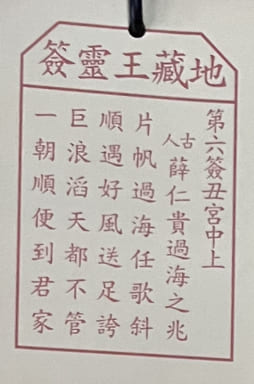 地藏王靈簽
第六簽丑宮中上
古人薛仁貴過海之兆
片帆過海任歌斜
順遇好風送足誇
巨浪滔天都不管
一朝順便到君家